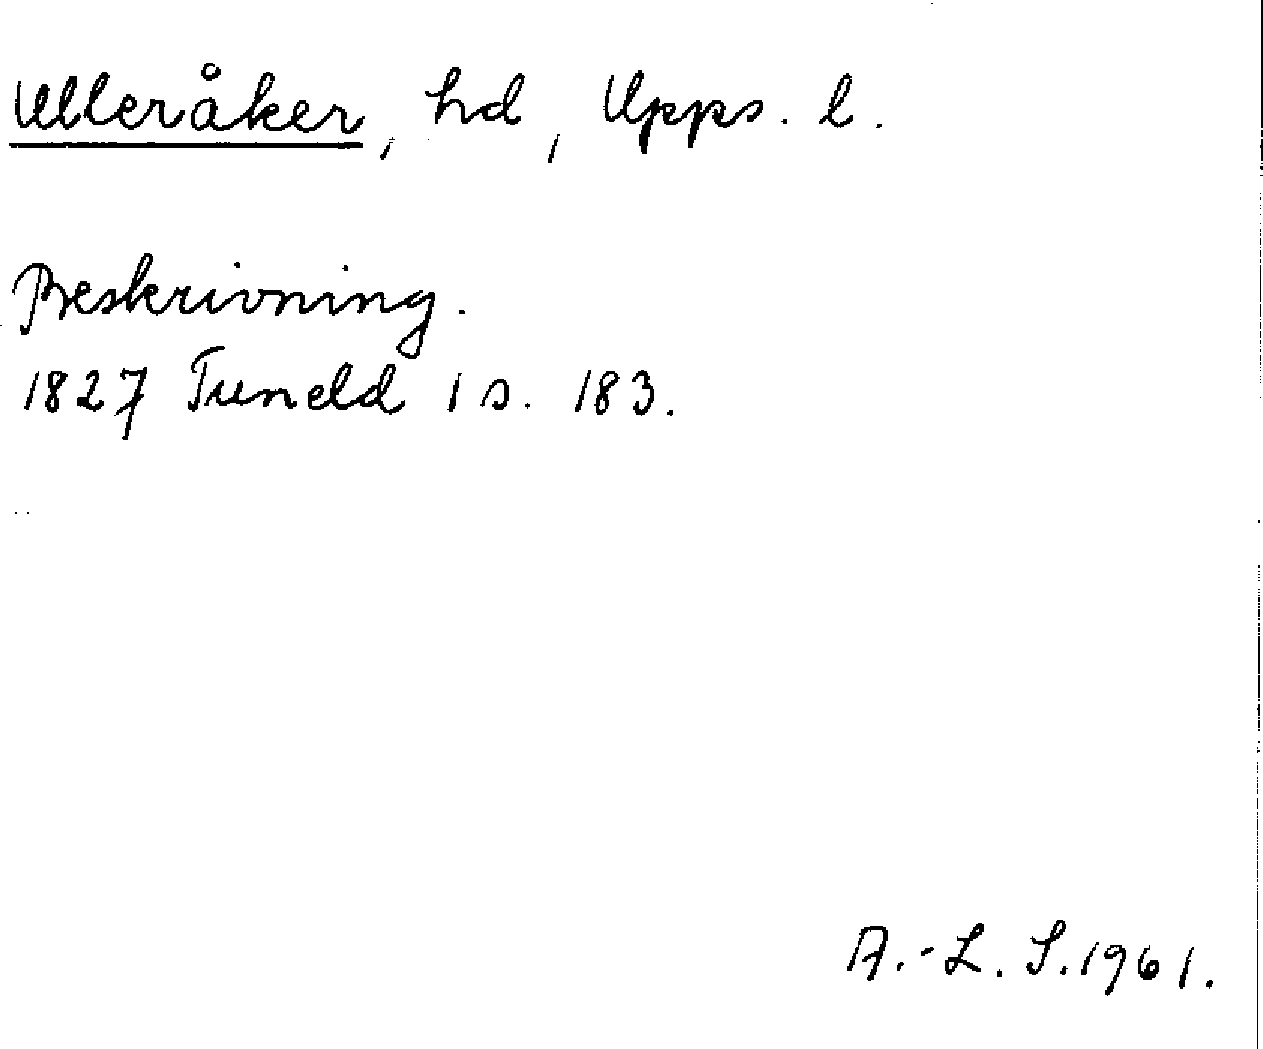 Ulleråker, hd, Upps. l.
Beskrivning.
1827 Tuneld 1 s. 183.
A.-L. S. 1961.